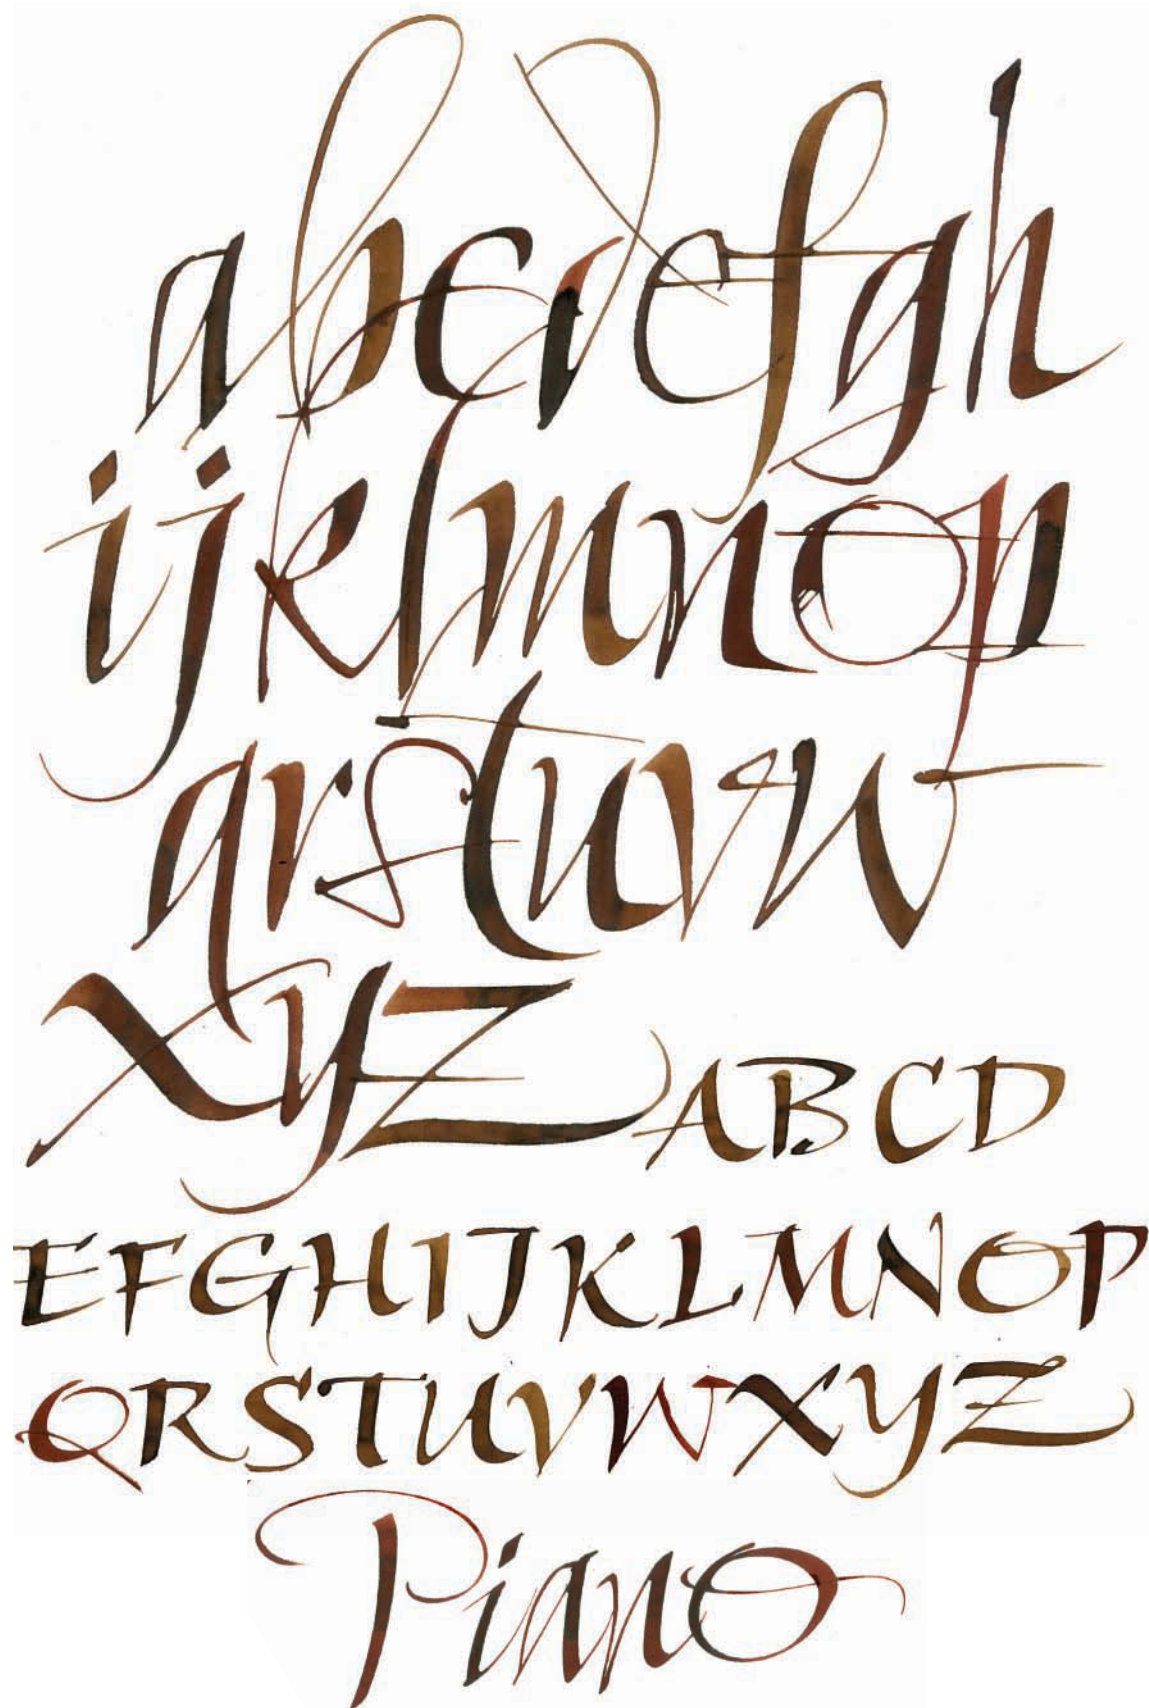 abcdefgh
ijklmnop
qrstuvw
xyz ABCD
EFGHIJKLMNOP
QRSTUVWXYZ
Piano